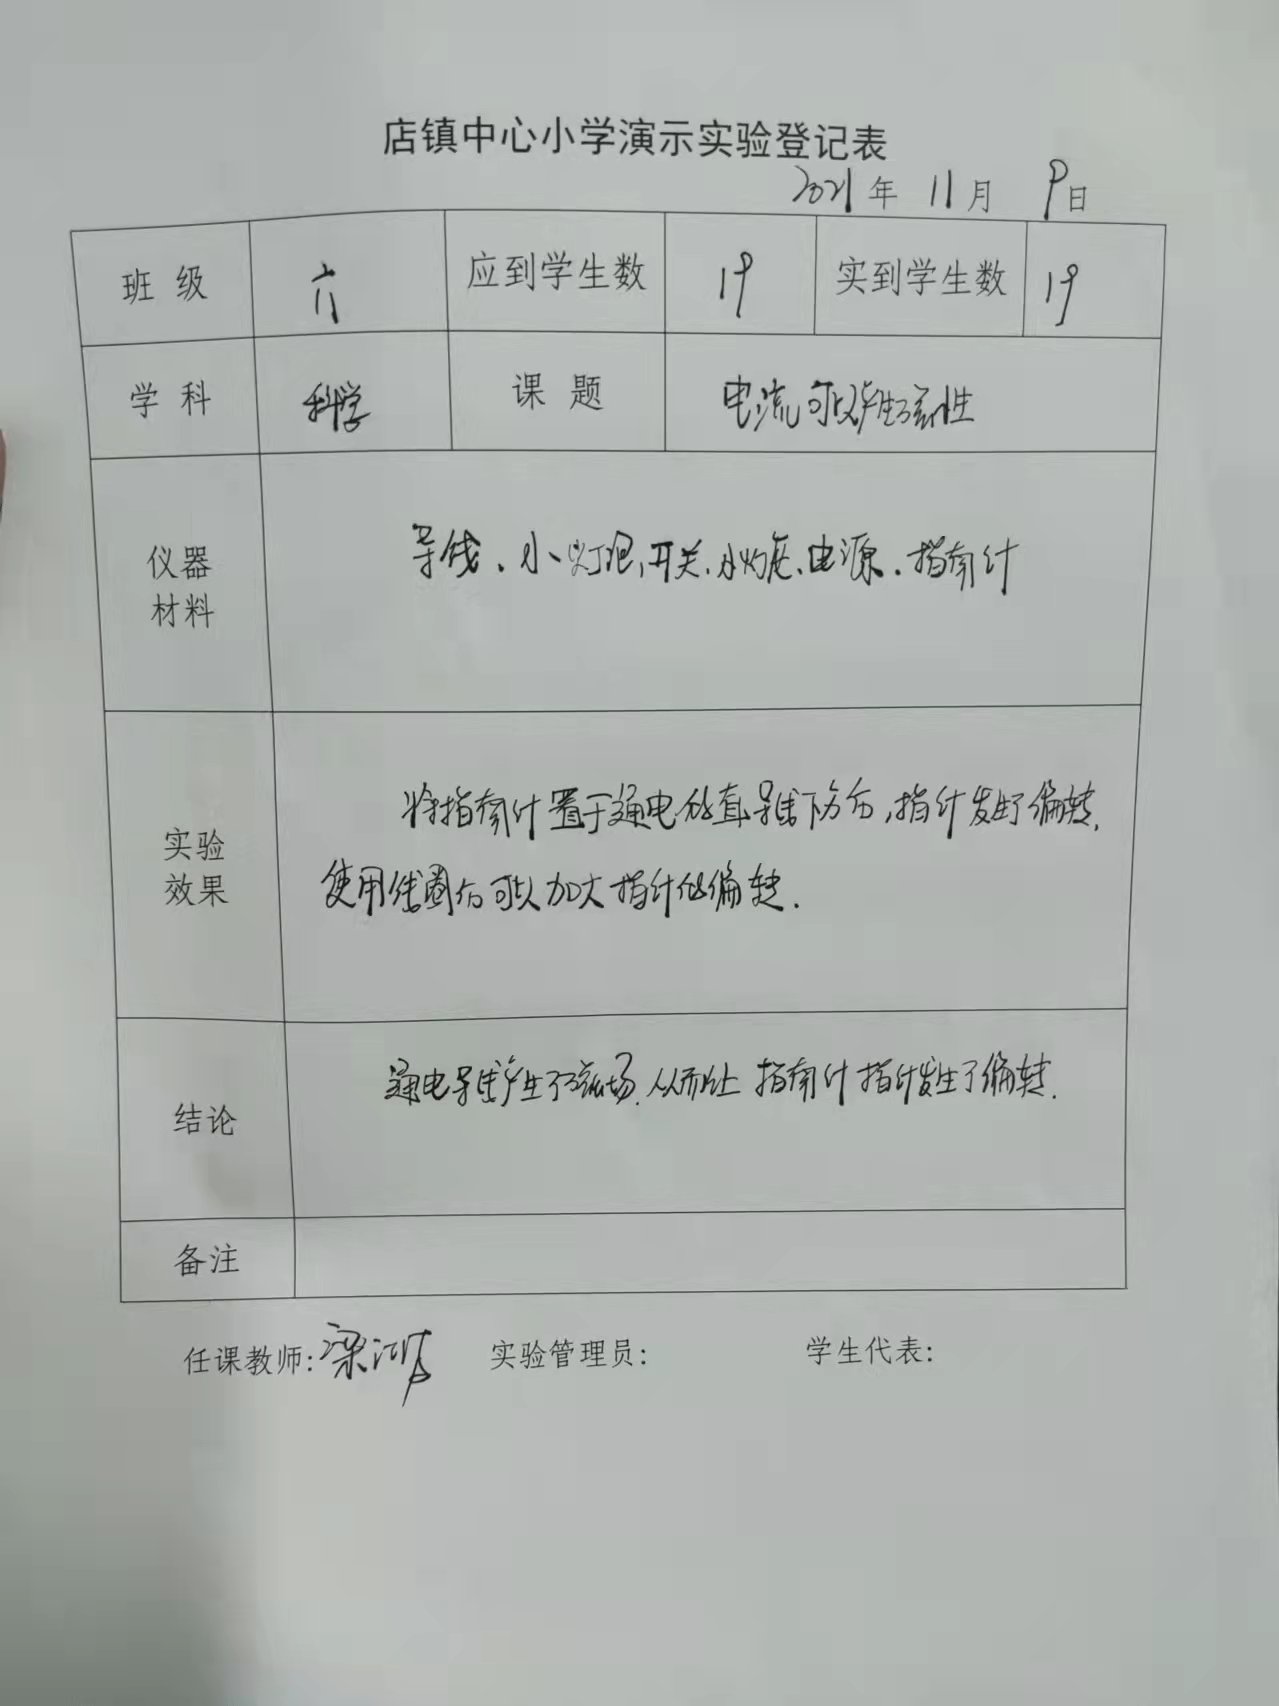 店镇中心小学演示实验登记表
2021年 11月 9日
班 级 六 应到学生数 19 实到学生数 19
学 科 科学 课 题 电流可以产生磁性
仪器
材料
导线、小灯泡、开关、小灯座、电源、指南针
实验
效果
将指南针置于通电的直导线下方后,指针发生了偏转,
使用线圈后可以加大指针的偏转.
结论
通电导线产生了磁场,从而让指南针指针发生了偏转.
备注
任课教师:梁 实验管理员: 学生代表: